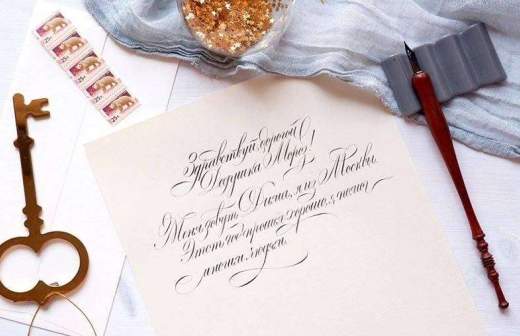 Здравствуй дорогой
Дедушка Мороз!
Меня зовут Диана, я из Москвы.
Этот год прошел хорошо, я помог
многим людям.